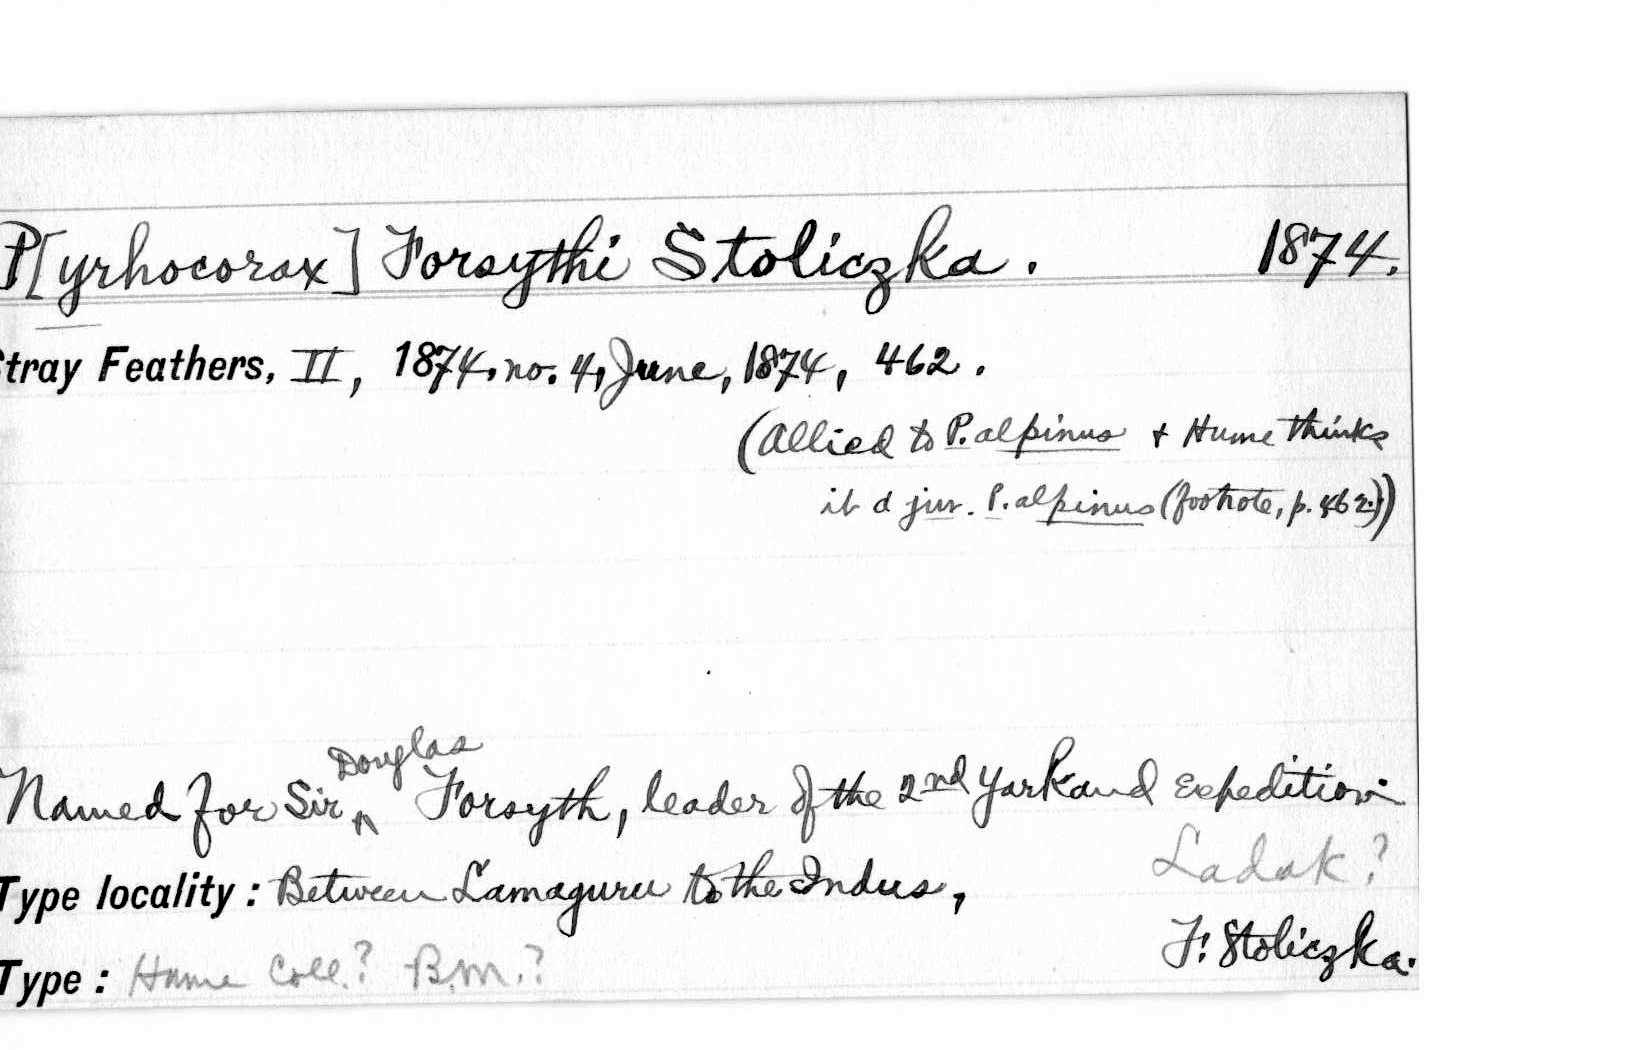 P[yrhocorax] Forsythi Stoliczka. 1874.
Stray Feathers, II, 1874, no. 4, June, 1874, 462.
(Allied to P. alpinus + Hume thinks
it a juv. P. alpinus (footnote, p. 462.))
Named for Sir Douglas Forsyth, leader of the 2nd Yarkand Expedition.
Ladak?
Type locality: Between Lamaguru to the Indus,
F. Stoliczka.
Type: Hume Coll.? B.M.?